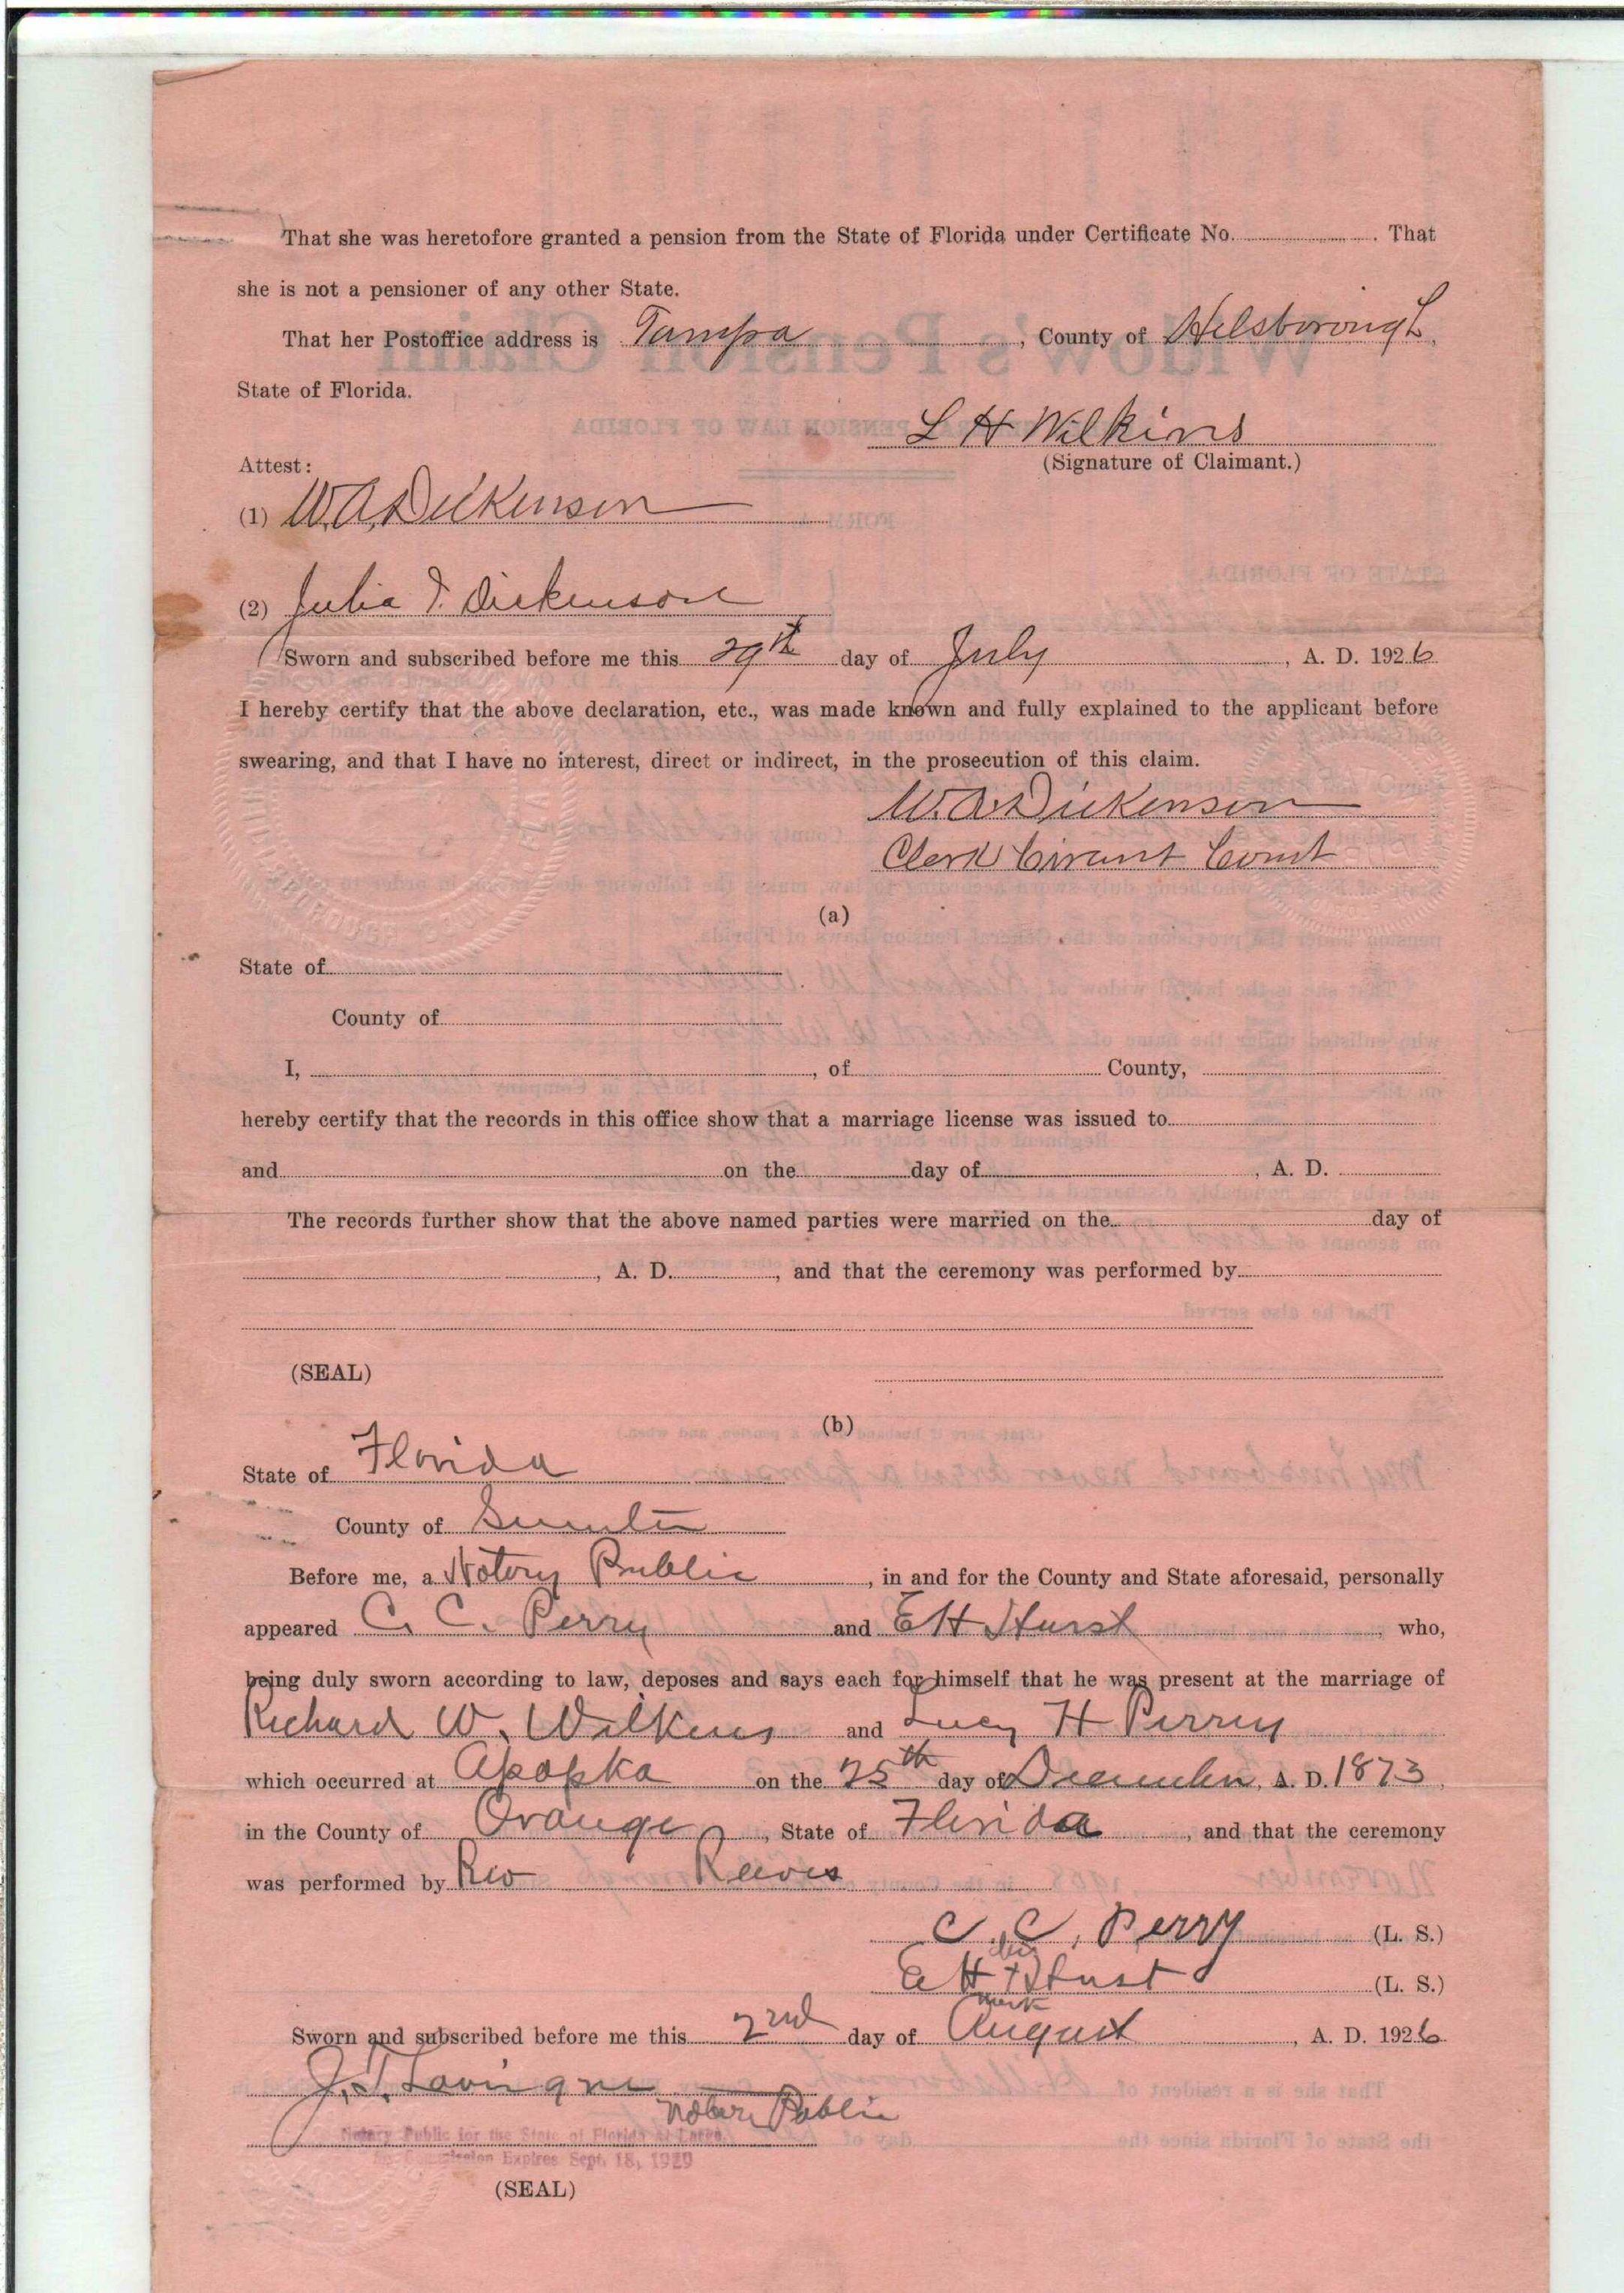 That she was heretofore granted a pension from the State of Florida under Certificate No. . That
she is not a pensioner of any other State.
That her Postoffice address is Tampa , County of Hilsborough,
State of Florida.
L H Wilkins
Attest: (Signature of Claimant.)
(1) W.A. Dickenson
(2) Julia T. Dickenson
Sworn and subscribed before me this 29th day of July , A. D. 1926
I hereby certify that the above declaration, etc., was made known and fully explained to the applicant before
swearing, and that I have no interest, direct or indirect, in the prosecution of this claim.
W.A. Dickenson
Clerk Circuit Court
(a)
State of
County of
I, , of County,
hereby certify that the records in this office show that a marriage license was issued to
and on the day of , A. D.
The records further show that the above named parties were married on the day of
, A. D. , and that the ceremony was performed by
(SEAL)
(b)
State of Florida
County of Sumter
Before me, a Notory Public , in and for the County and State aforesaid, personally
appeared C. C. Perry and E H Hurst , who,
being duly sworn according to law, deposes and says each for himself that he was present at the marriage of
Richard W. Wilkins and Lucy H Perry
which occurred at Apopka on the 25th day of December, A. D. 1873,
in the County of Orange , State of Florida , and that the ceremony
was performed by Rev Reeves
C. C. Perry (L. S.)
his
E H + Hurst (L. S.)
mark
Sworn and subscribed before me this 2nd day of August , A. D. 1926
Notary Public
Notary Public for the State of Florida at Large.
My Commission Expires Sept. 18, 1929
(SEAL)